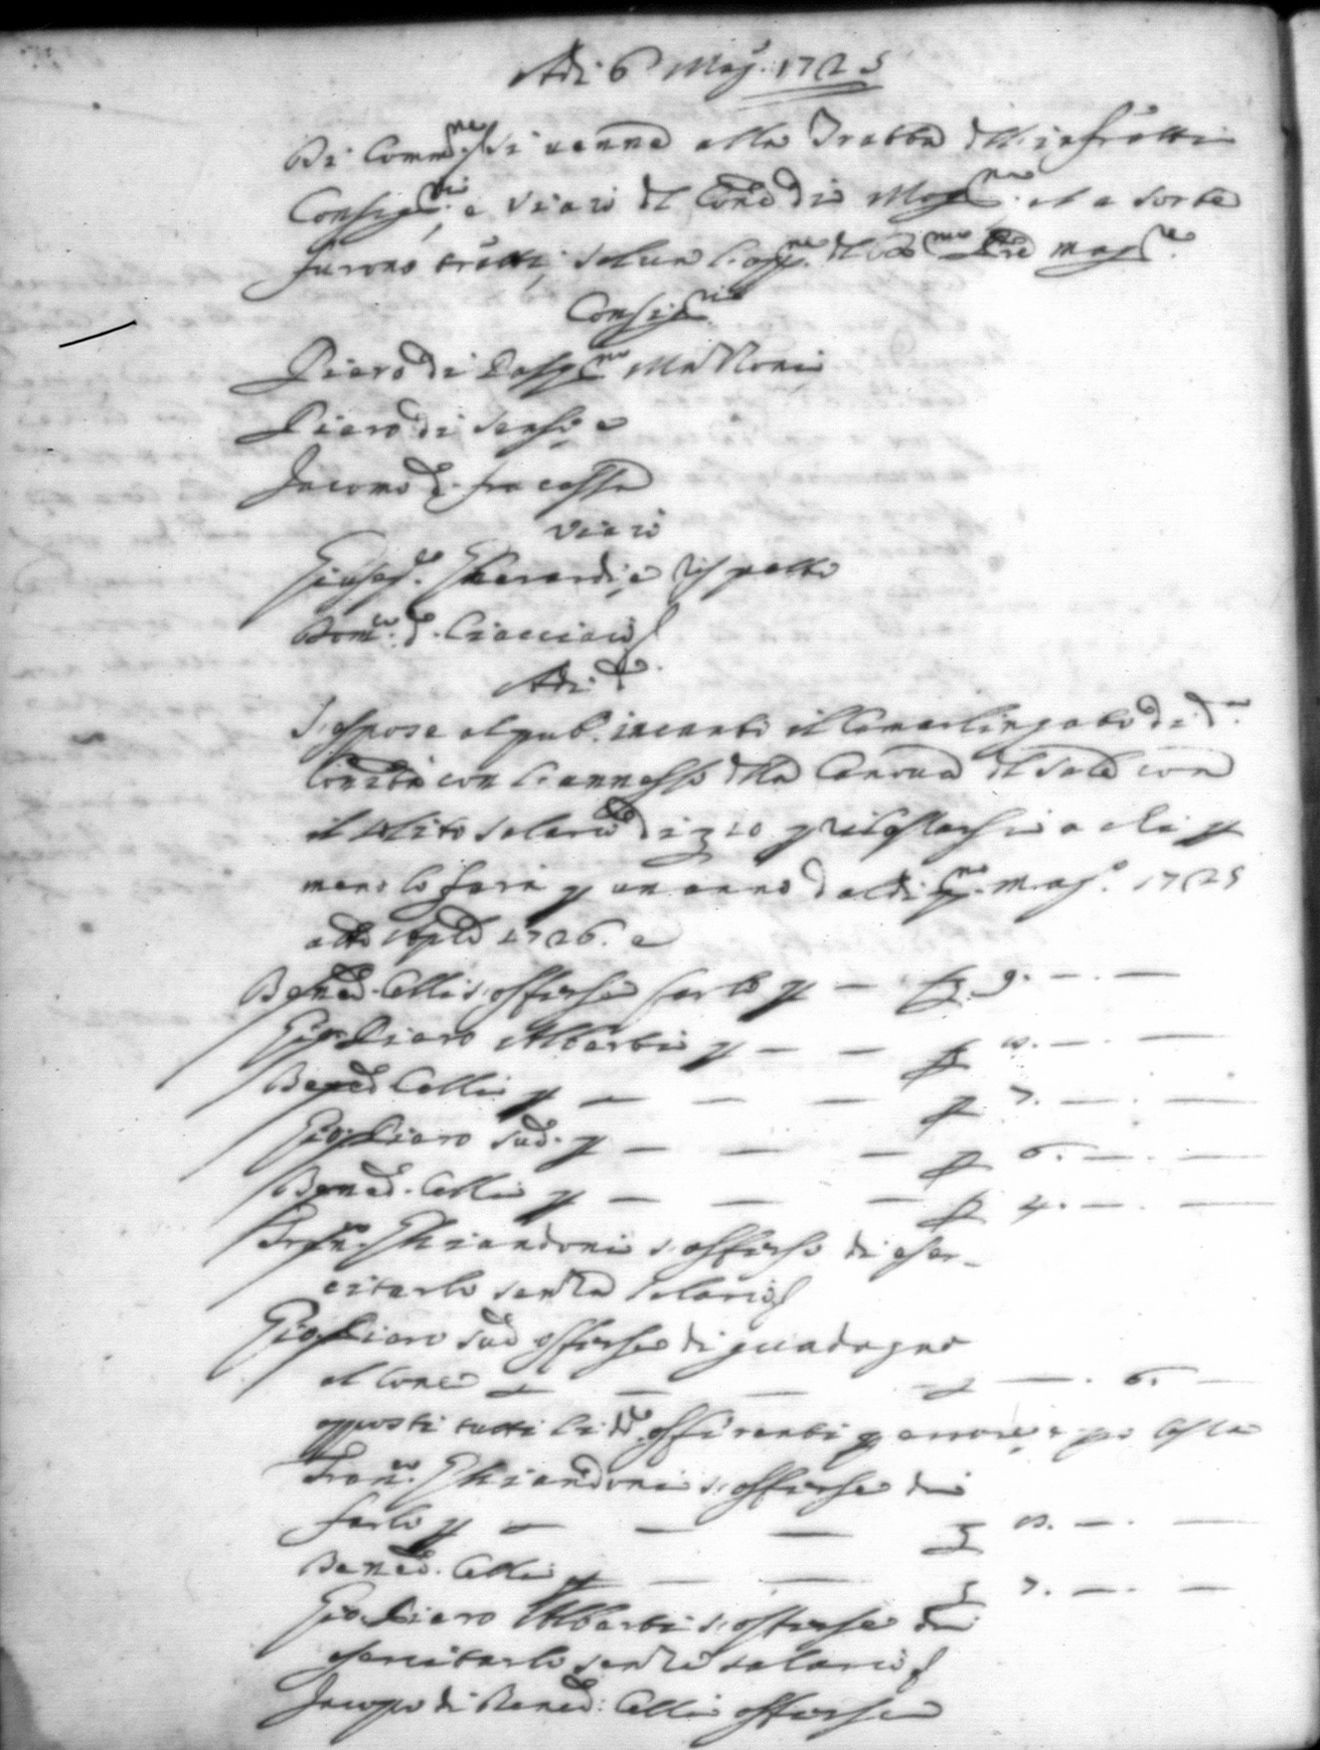 Adi 6 Mag.° 1725
Di Comm.ne si venne alla Tratta dell' infr'atti
Consig.ri, e Viari del Com.e di Mag.no et a sorte
furono tratti, salva l'app.ne
Consig.ri
Piero di Pasq.no
Piero di Sensi e
Jacomo d. fracassa
Viari
Gius.e Gherardi, e rispetto
Dom.co d. Ciacciari
Adi d.°
S'espose al pub. incanto il Camarlingato di d.a
Com.tà con l'annesso della Canova del Sale con
il solito salario di £ 10 p a chi p
meno lo farà p un anno dal di p.mo Mag.° 1725
a tutto Aprile 1726. e
Bened. Celli s'offerse farlo p — £ 9. — . —
Gio: Piero Alberti p — — £ 8. — . —
Bened. Celli p — — — £ 7. — . —
Gio: Piero sud. p — — — £ 6. — . —
Bened. Celli p — — — £ 4. — . —
Fran.co Ghiandoni s'offerse di eser-
citarlo senza salario
Gio: Piero sud. offerse di guadagno
al Com.e — — — £ — . 6. —
tutti li d.i offerenti p errore, e
Fran.co Ghiandoni s'offerse di
farlo p — — — £ 8. — . —
Bened. Celli p — — £ 7. — . —
Gio: Piero Alberti s'offerse di
esercitarlo senza salario
Jacopo di Bened. Celli offerse